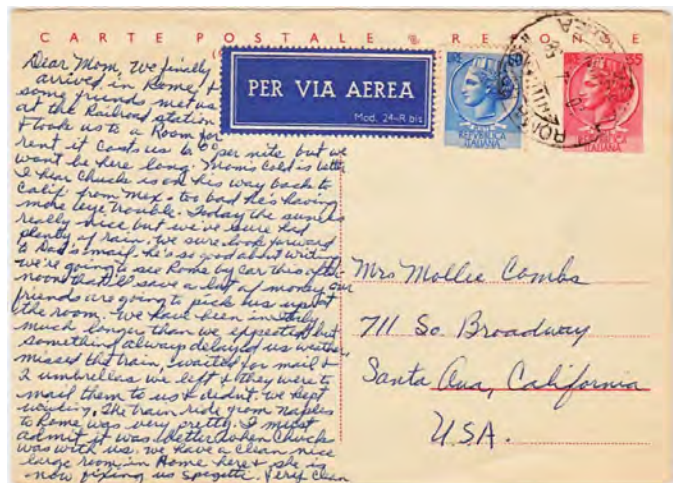 CARTE POSTALE RE ON E
Dear Mom, We finally
arrived in Rome, &
some friends met us
at the Railroad station
& took us to a Room for
rent it costs us per nite but we
wont be here long. Mom's cold is better
I hear Chuck is on his way back to
Calif. from Mex. too bad he's having
more eye trouble. Today the sun is
really nice but we've sure had
plenty of rain. We sure look forward
to Dad's mail, he's so good about writing
we're going to see Rome by car this after-
noon that'll save a lot of money our
friends are going to pick us up at
the room. We have been in Italy
much longer than we expected but
something always delayed us weather,
missed the train, waited for mail &
2 umbrellas we left & they were to
mail them to us & didnt. We kept
The train ride from Naples
to Rome was very pretty. I must
admit it was better when Chuck
was with us. We have a clean nice
large room in Rome here & she is
now fixing us spegetti. Very clean
PER VIA AEREA
Mod. 24-R bis
60
REPVBBLICA
ITALIANA
35
REPVBBLICA
ITALIANA
ROMA
Mrs Mollie Combs
711 So. Broadway
Santa Ana, California
U.S.A.